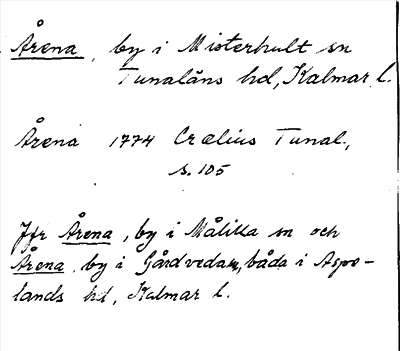 Årena, by i Misterhult sn
Tunaläns hd, Kalmar l.
Årena 1774 Crælius Tunal.,
s. 105
Jfr Årena, by i Målilla sn och
Årena, by i Gårdveda sn, båda i Aspe-
lands hd, Kalmar l.